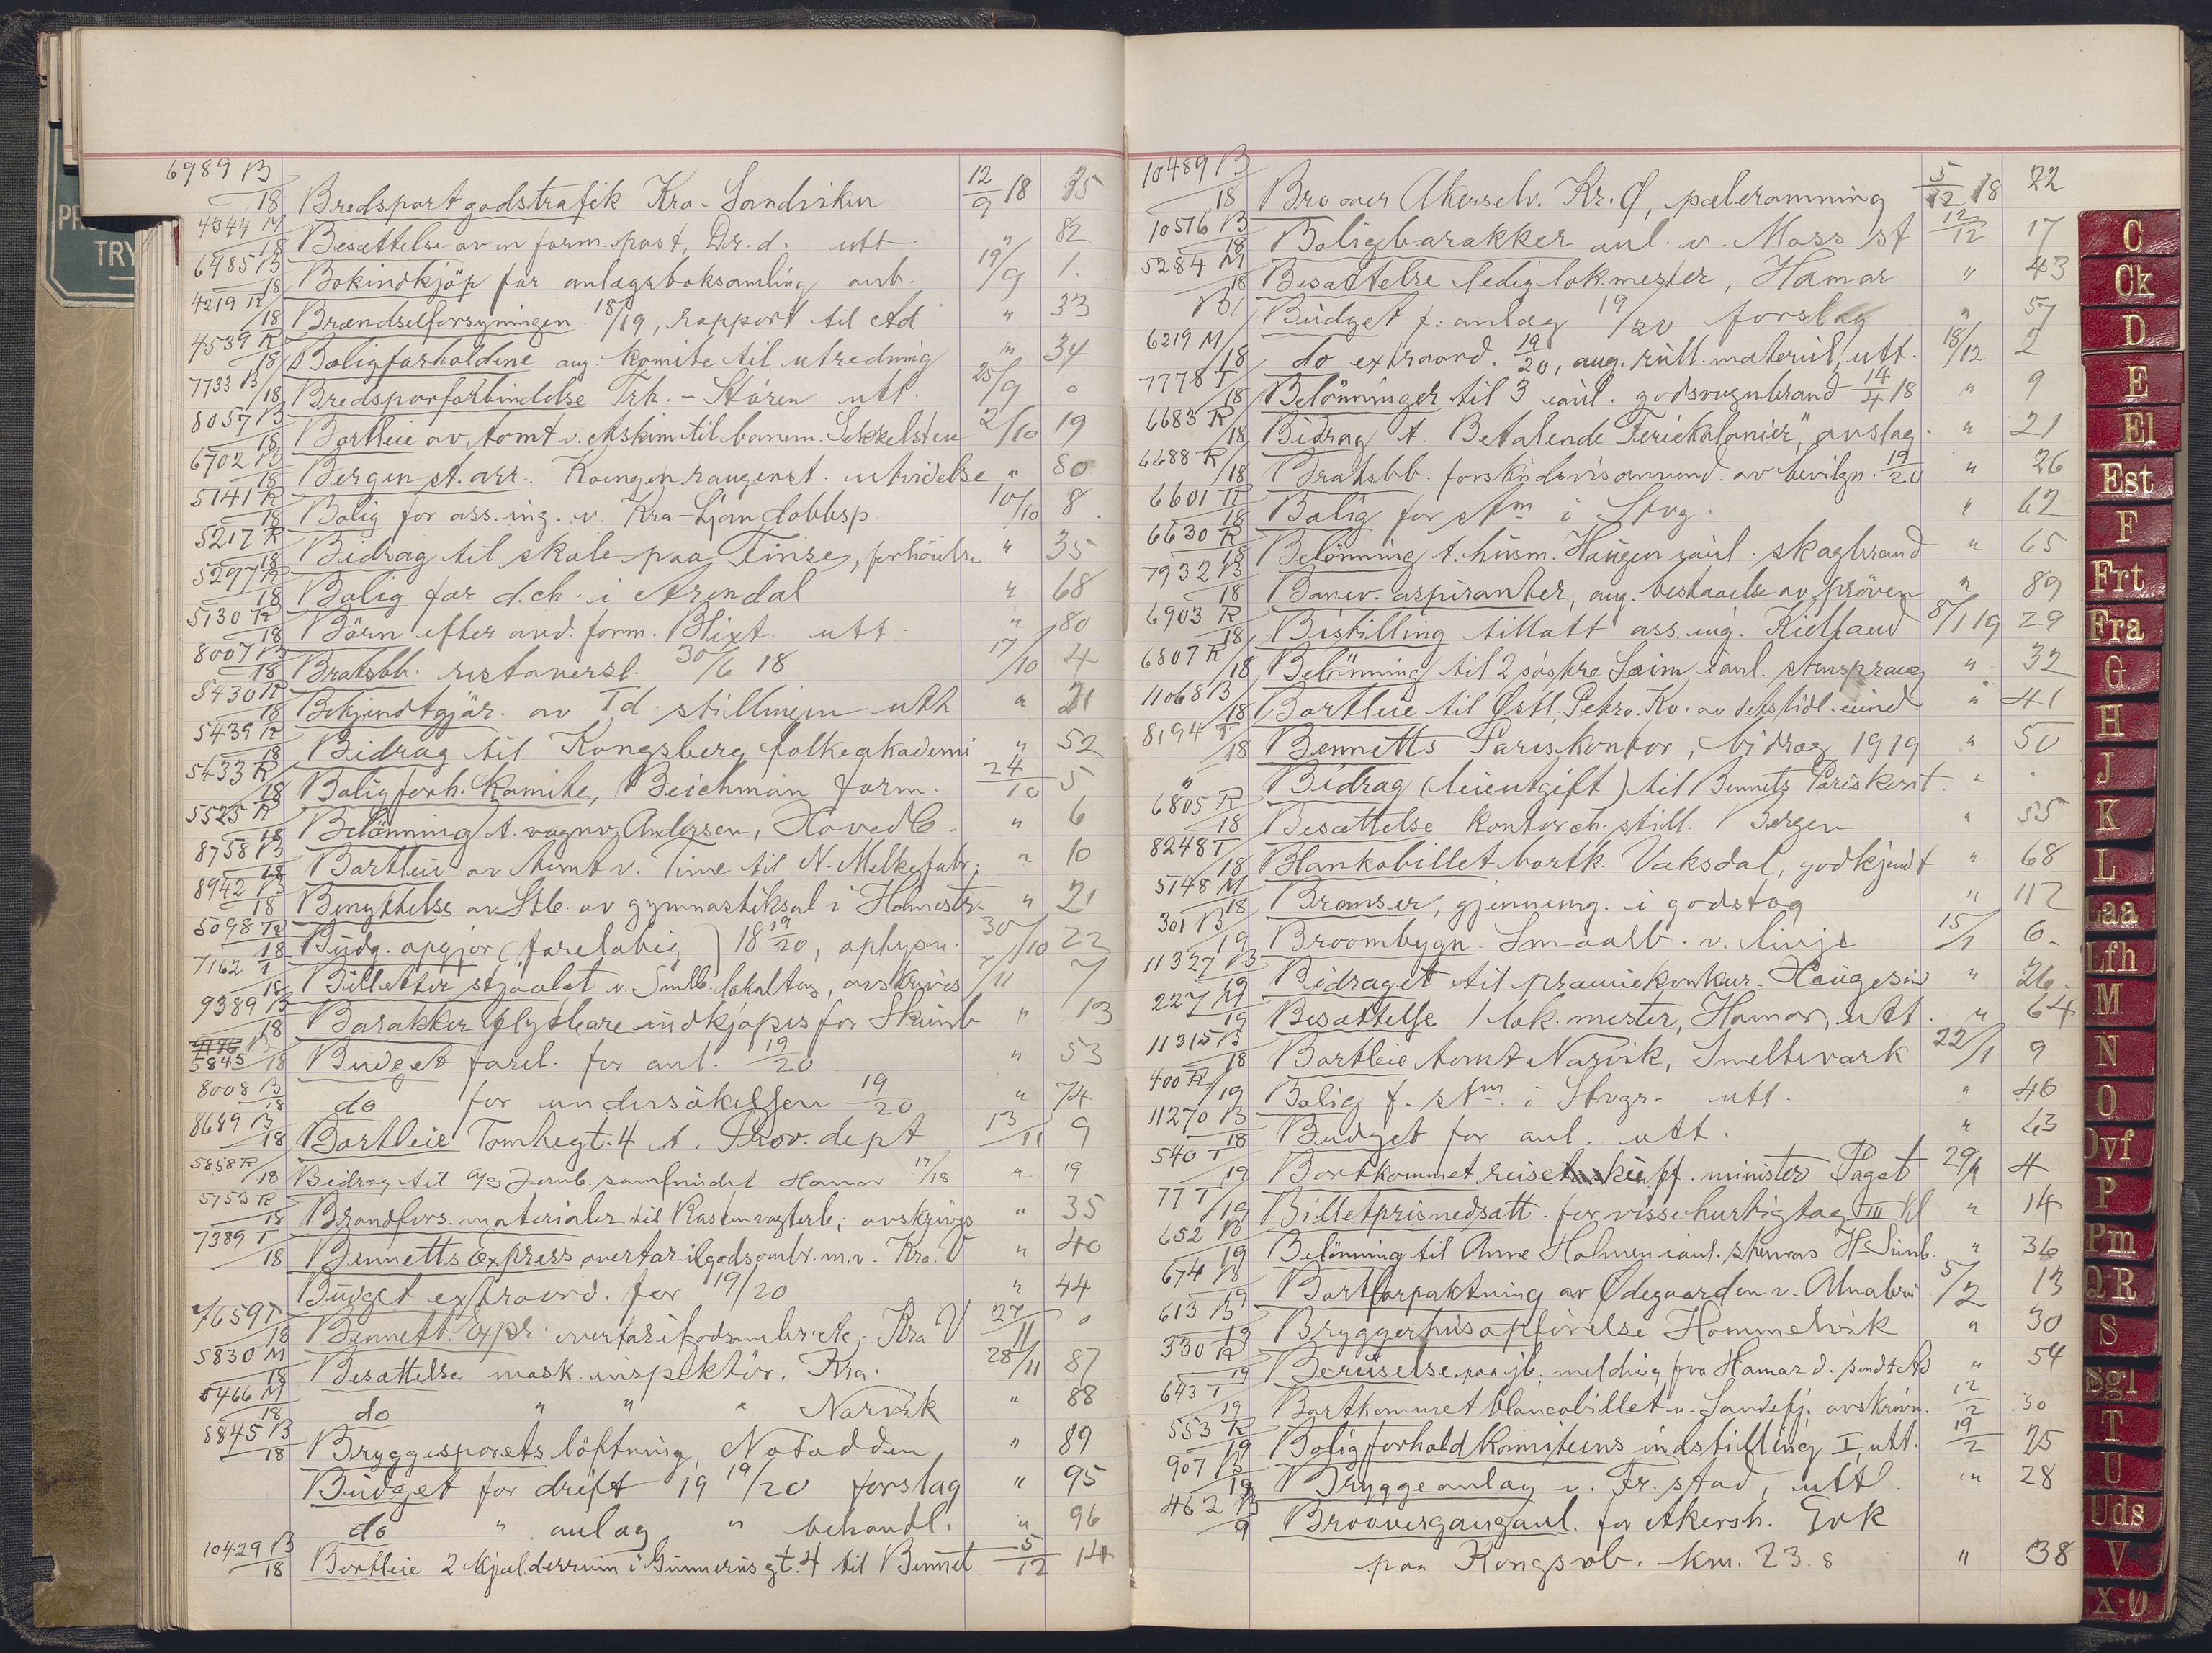 6989 B/18 Bredsport godstrafik Kra.-Sandviken 12/9 18 35
4344 M/18 Besættelse av en form. post, Dr. d. utt. " 82
6485 B/18 Bokindkjöp for anlagsboksamling anb. 19/9 1.
4219 R/18 Brændselforsyningen 18/19, rapport til Ad " 33
4539 R/18 Boligforholdene ang. komite til utredning " 34
7733 B/18 Bredsporforbindelse Trh. - Stören utt. 25/9 0
8057 B/18 Bortleie av tomt v. Askim til banem. Sekkelsten 2/10 19
6702 B/18 Bergen st. arr. utvidelse " 80
5141 R/18 Bolig for ass. ing. v. Kra-Ljan dobbsp. 10/10 8
5217 R/18 Bidrag til skole paa Finse, forhöielse " 35
5297 R/18 Bolig for d.ch. i Arendal " 68
5130 R/18 Börn efter avd. form. Blixt. utt. " 80
8007 B/18 Bratsbb. restoversl. 30/6 18 17/10 4
5430 R/18 Bekjendtgjör. av Td. stillingen utt " 21
5439 R/18 Bidrag til Kongsberg folkeakademi " 52
5433 R/18 Boligforh. Komite, Beichman form. 24/10 5
5525 R/18 Belönning t. vognv. Andersen, Hoved B. " 6
8758 B/18 Bortleie av tomt v. Time til N. Melkefabr. " 10
8942 B/18 Benyttelse av Stb. av gymnastiksal i Holmestr. " 21
5098 R/18 Budg. opgjör (foreløbig) 18 19/20, oplysn. 30/10 22
7162 T/18 Billetter stjaalet v. Smlb. lokaltog, avskrives 7/11 7
9389 B/18 Barakker flytbare indkjøpes for Skinb " 13
5845 B/18 Budget forel. for anl. 19/20 " 53
8008 B/18 do for undersökelsen 19/20 " 74
8689 B/18 Bortleie Tomtegt. 4 t. Prov. dept 13/11 9
5858 R/18 Bidrag til A/S Jernb. samfundet Hamar 17/18 " 19
5753 R/18 Brandfors. materialer til avskrives " 35
7389 T/18 Bennetts Express overtar ilgodsombr. m.v. Kra. V " 40
Budget extraord. for 19/20 " 44
7659 T/18 Bennett. Expr. overtar Kra V 27/11 0
5830 M/18 Besættelse mask. inspektör. Kra. 28/11 87
5466 M/18 do " " " Narvik " 88
8845 B/18 Bryggesporets löftning, Notodden " 89
Budget for drift 19 19/20 forslag " 95
do " anlæg " behandl. " 96
10429 B/18 Bortleie 2 kjælderrum i Gunnerus gt. 4 til Bennet 5/12 14
10489 B/18 Bro over Akerselv. Kr. Ø, pæleramming 5/12 18 22
10576 B/18 Boligbarakker anl. v. Moss st 12/12 17
5284 M/18 Besættelse ledig lok.mester, Hamar " 43
B/ Budget f. anlæg 19/20 forslag " 57
6219 M/18 do extraord. 19/20, ang. rull. materiel, utt. 18/12 2
7778 T/18 Belönninger til 3 i anl. godsvognbrand 14/4 18 " 9
6683 R/18 Bidrag t. "Betalende Feriekolonier", avslag. " 21
6688 R/18 Bratsbb. forskudsvis anvend. av bevilgn. 19/20 " 26
6601 R/18 Bolig for stm i Stvg. " 62
6630 R/18 Belönning t. husm. Haugen i anl. skogbrand " 65
7932 B/18 Banev. aspiranter, ang. bestaaelse av pröven " 89
6903 R/18 Bistilling tillatt ass. ing. Kielland 8/1 19 29
6807 R/18 Belönning til 2 söstre i anl. stensprang " 32
11068 B/18 Bortleie til Østl. Petro. Ko. av " 41
8194 T/18 Bennetts Pariskontor, bidrag 1919 " 50
" Bidrag (leieutgift) til Bennets Pariskont. " "
6805 R/18 Besættelse kontorch. still. Bergen " 55
8248 T/18 Blankobillet bortk. Vaksdal, godkjendt " 68
5148 M/18 Bremser, gjennemg. i godstog " 112
301 B/19 Broombygn. Smaalb. v. linje 15/1 6.
11327 B/19 Bidraget til præmiekonkur. Haugesund " 26.
227 M/19 Besættelse 1 lok. mester, Hamar, utt. " 64
11315 B/18 Bortleie tomt Narvik, Smelteverk 22/1 9
400 R/19 Bolig f. stm. i Stvgr. utt. " 46
11270 B/18 Budget for anl. utt. " 63
540 T/19 Bortkommet reise f. minister Paget 29/1 4
77 T/19 Billetprisnedsatt. for visse hurtigtog III kl " 14
652 B/19 Belönning til Anne Holmen i anl. stenras H-Sunb. " 36
674 B/19 Bortforpaktning av Ødegaarden v. Alnabru 5/2 13
613 B/19 Bryggerhusopførelse Hommelvik " 30
330 R/19 Beruselse paa jb. melding fra Hamar d. sendt Ad " 54
643 T/19 Bortkommet blancobillet v. Sandefj. avskrivn. 12/2 30
553 R/19 Boligforhold Komiteens indstilling I, utt. 19/2 25
907 B/19 Bryggeanlæg v. Fr.stad, uttl. " 28
462 B/9 Broovergang anl. for Akersh. Evk
paa Kongsvb. km. 23.8 " 38
PR
TRY
C
Ck
D
E
El
Est
F
Frt
Fra
G
H
J
K
L
Laa
Lfh
M
N
O
Ovf
P
Pm
Q R
S
Sgl
T
U
Uds
V
X-Ø